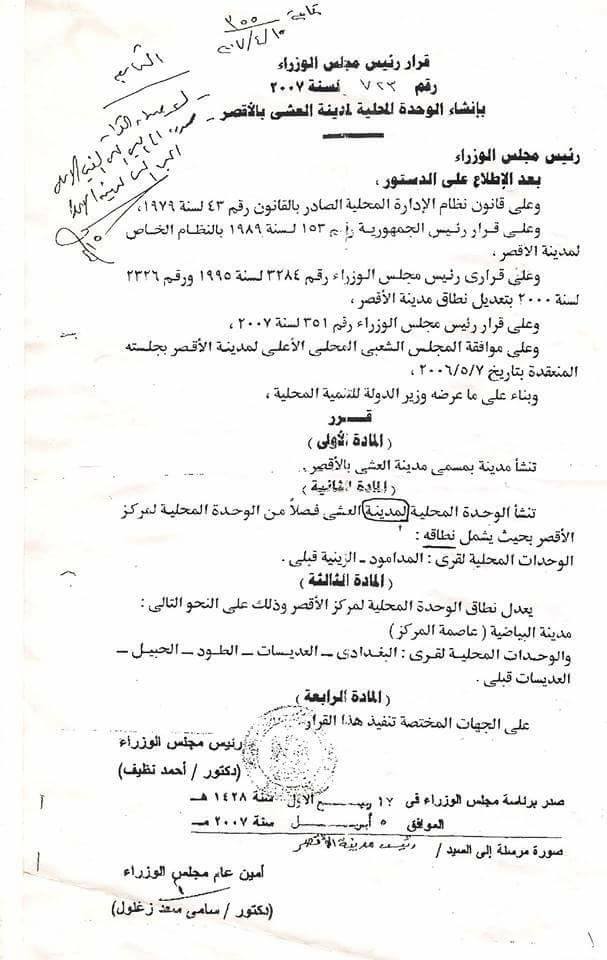 ٣٥٥
٢٠٠٧/٤/١٥
قرار رئيس مجلس الوزراء
رقم ٧٢٣ لسنة ٢٠٠٧
بإنشاء الوحدة المحلية لمدينة العشى بالأقصر
رئيس مجلس الوزراء
بعد الإطلاع على الدستور ،
وعلى قانون نظام الإدارة المحلية الصادر بالقانون رقم ٤٣ لسنة ١٩٧٩،
وعلى قرار رئيس الجمهورية رقم ١٥٣ لسنة ١٩٨٩ بالنظام الخاص
لمدينة الاقصر ،
وعلى قرارى رئيس مجلس الوزراء رقم ٣٢٨٤ لسنة ١٩٩٥ ورقم ٢٣٢٦
لسنة ٢٠٠٠ بتعديل نطاق مدينة الأقصر ،
وعلى قرار رئيس مجلس الوزراء رقم ٣٥١ لسنة ٢٠٠٧ ،
وعلى موافقة المجلس الشعبى المحلى الأعلى لمدينة الأقصر بجلسته
المنعقدة بتاريخ ٢٠٠٦/٥/٧ ،
وبناء على ما عرضه وزير الدولة للتنمية المحلية ،
قـــرر
( المادة الأولى )
تنشأ مدينة بمسمى مدينة العشى بالأقصر.
( المادة الثانية )
تنشأ الوحدة المحلية لمدينة العشى فصلاً من الوحدة المحلية لمركز
الأقصر بحيث يشمل نطاقه :
الوحدات المحلية لقرى : المدامود ـ الزينية قبلى .
( المادة الثالثة )
يعدل نطاق الوحدة المحلية لمركز الأقصر وذلك على النحو التالى :
مدينة البياضية ( عاصمة المركز )
والوحدات المحلية لقرى : البغدادى ـ العديسات ـ الطود ـ الحبيل ـ
العديسات قبلى .
( المادة الرابعة )
على الجهات المختصة تنفيذ هذا القرار
رئيس مجلس الوزراء
(دكتور / أحمد نظيف)
صدر برئاسة مجلس الوزراء فى ١٧ ربيـــع الأول سنة ١٤٢٨ هـ
الموافق ٥ أبريـــل سنة ٢٠٠٧ مـ
صورة مرسلة إلى السيد / رئيس مدينة الأقصر
أمين عام مجلس الوزراء
(دكتور / سامى سعد زغلول)